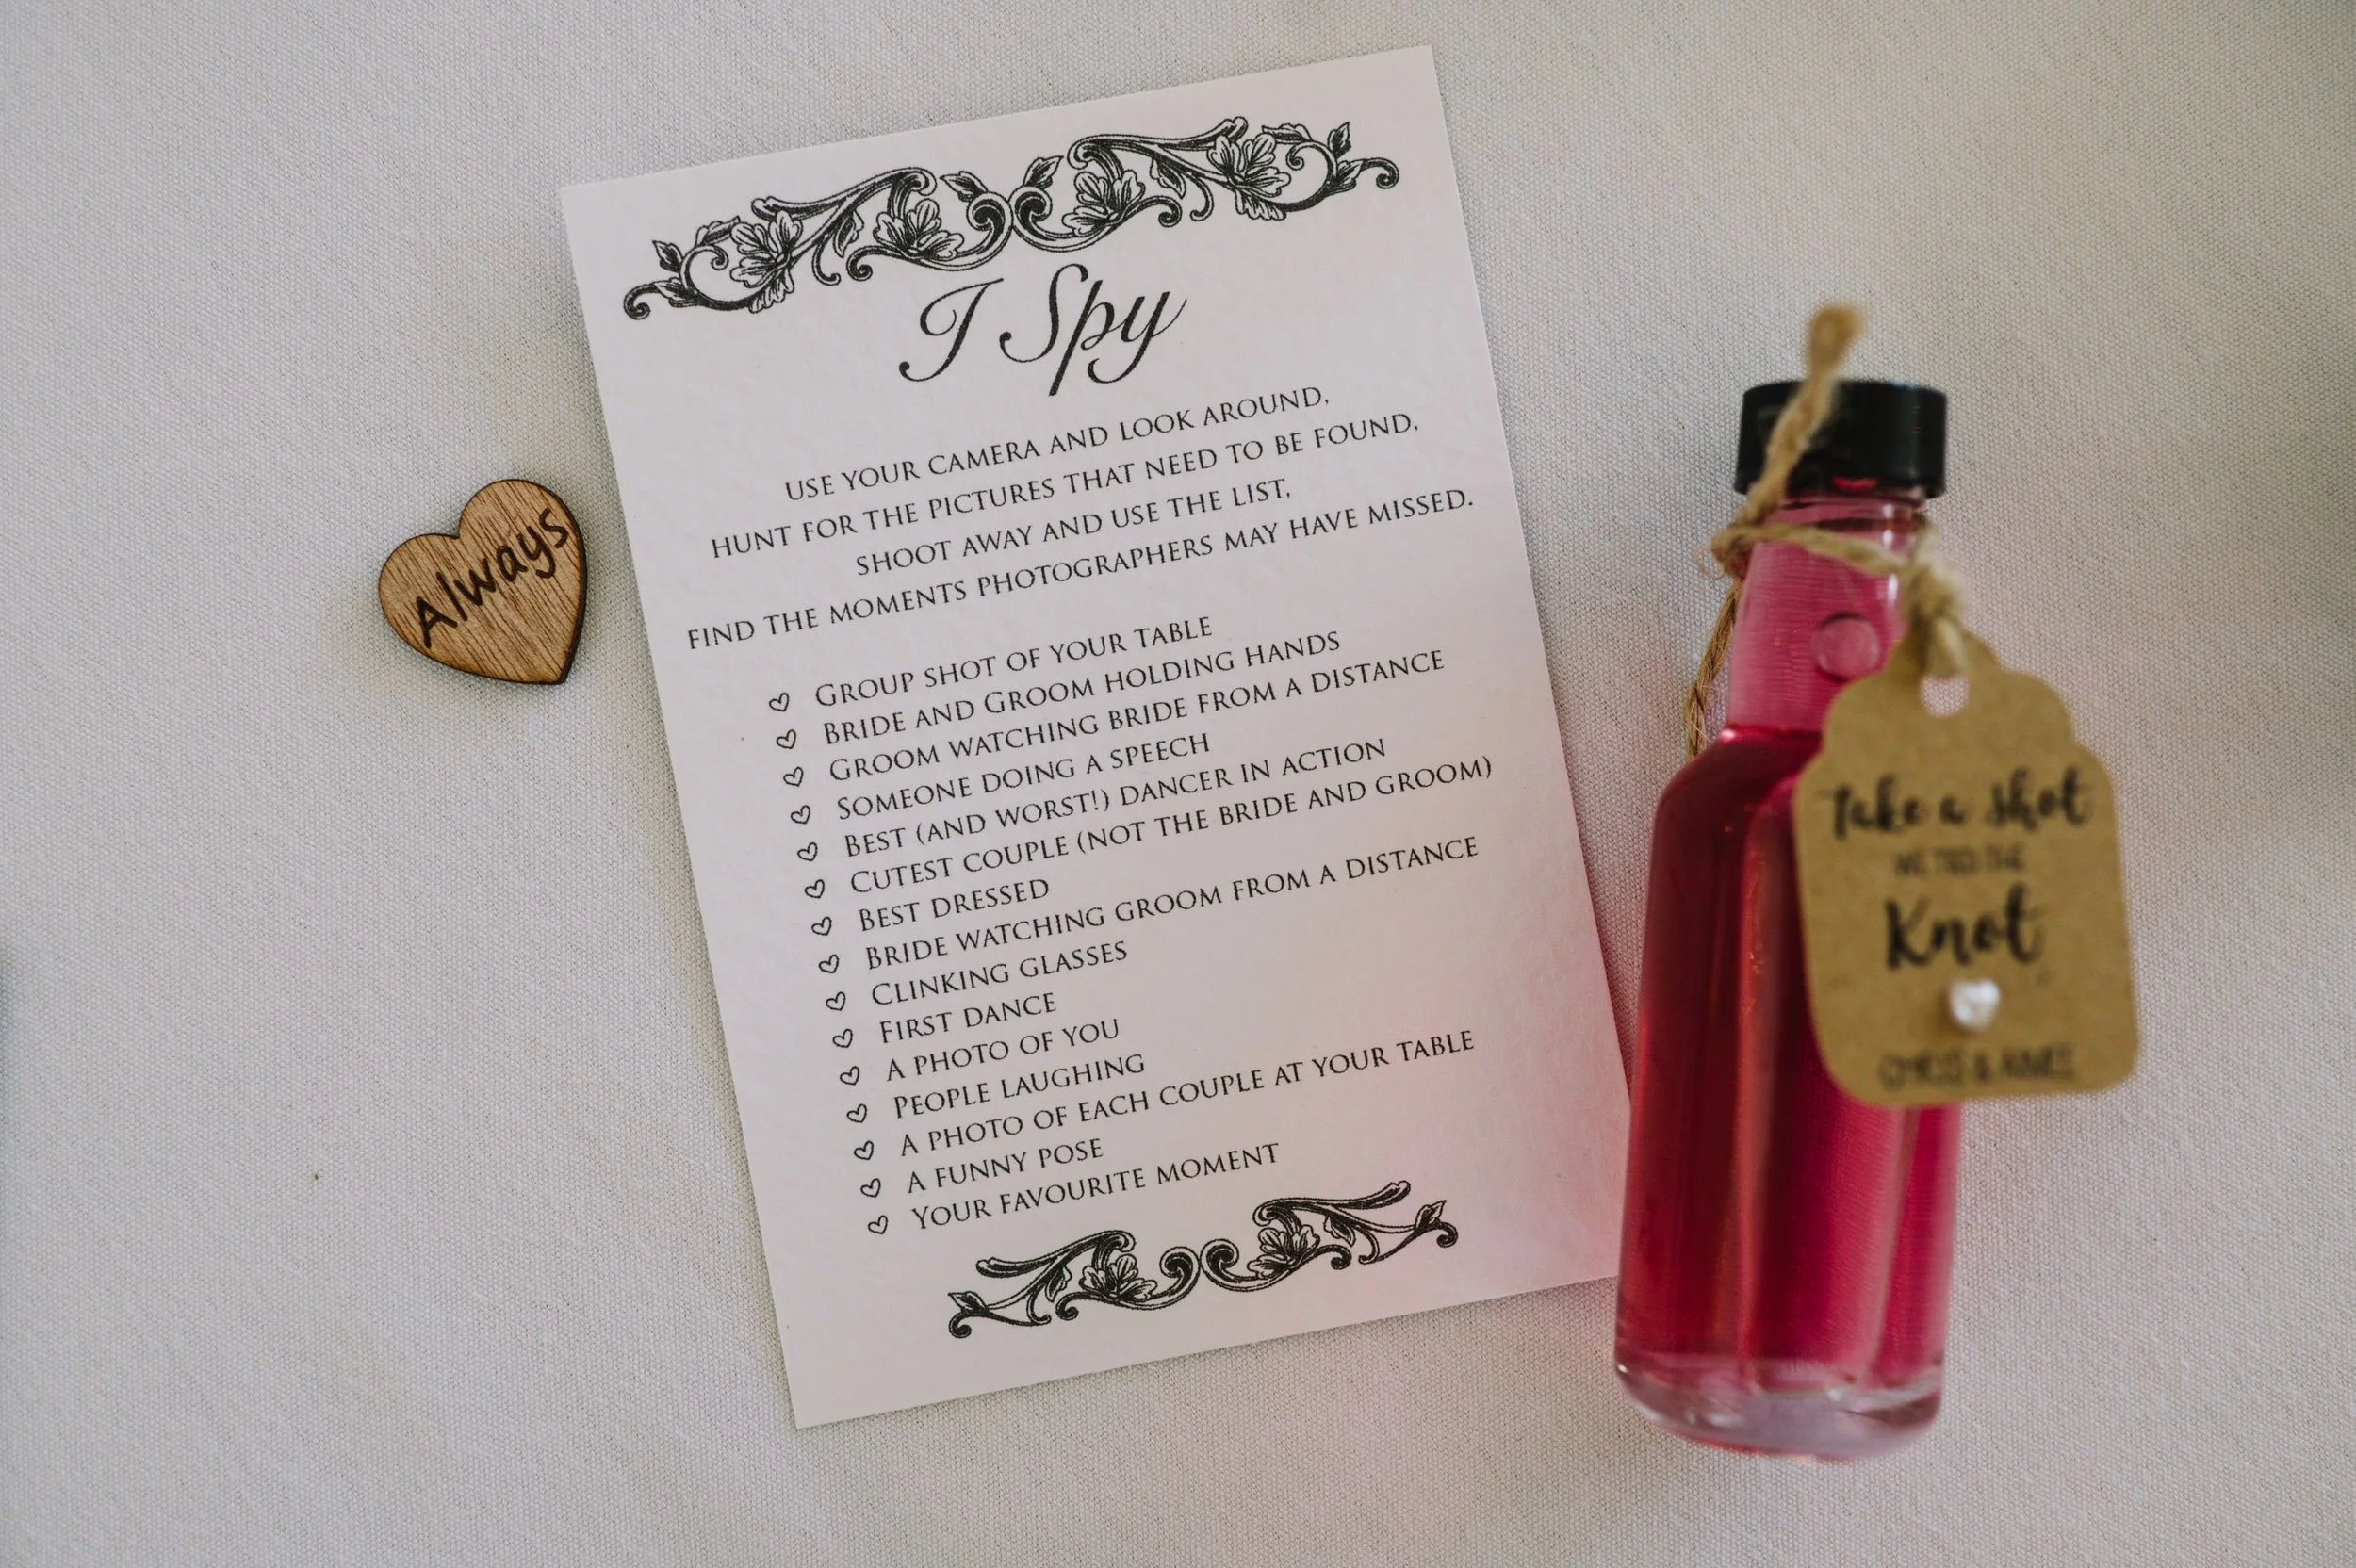 Always
I Spy
USE YOUR CAMERA AND LOOK AROUND,
HUNT FOR THE PICTURES THAT NEED TO BE FOUND,
SHOOT AWAY AND USE THE LIST,
FIND THE MOMENTS PHOTOGRAPHERS MAY HAVE MISSED.
GROUP SHOT OF YOUR TABLE
BRIDE AND GROOM HOLDING HANDS
GROOM WATCHING BRIDE FROM A DISTANCE
SOMEONE DOING A SPEECH
BEST (AND WORST!) DANCER IN ACTION
CUTEST COUPLE (NOT THE BRIDE AND GROOM)
BEST DRESSED
BRIDE WATCHING GROOM FROM A DISTANCE
CLINKING GLASSES
FIRST DANCE
A PHOTO OF YOU
PEOPLE LAUGHING
A PHOTO OF EACH COUPLE AT YOUR TABLE
A FUNNY POSE
YOUR FAVOURITE MOMENT
Take a shot
WE TIED THE
Knot
CHRIS & AIMEE